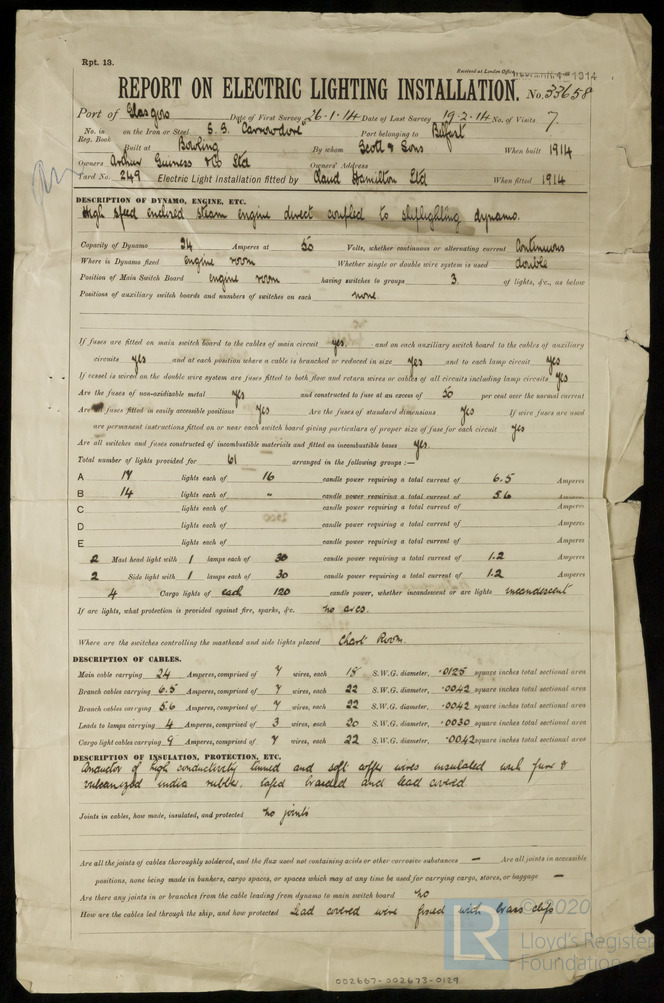 Rpt. 13.
Received at London Office
1914
REPORT ON ELECTRIC LIGHTING INSTALLATION. No. 33658
Port of Glasgow Date of First Survey 26·1·14 Date of Last Survey 19·2·14 No. of Visits 7.
No. in Reg. Book on the Iron or Steel S.S. "Carrowdore" Port belonging to Belfast
Built at Bowling By whom Scott & Sons When built 1914
Owners Arthur Guiness & Co Ltd Owners' Address
Yard No. 249 Electric Light Installation fitted by Claud Hamilton Ltd When fitted 1914
DESCRIPTION OF DYNAMO, ENGINE, ETC.
High speed enclosed steam engine direct coupled to shiplighting dynamo.
Capacity of Dynamo 24 Amperes at 50 Volts, whether continuous or alternating current Continuous
Where is Dynamo fixed engine room Whether single or double wire system is used double
Position of Main Switch Board engine room having switches to groups 3. of lights, &c., as below
Positions of auxiliary switch boards and numbers of switches on each none.
If fuses are fitted on main switch board to the cables of main circuit yes. and on each auxiliary switch board to the cables of auxiliary
circuits yes and at each position where a cable is branched or reduced in size yes and to each lamp circuit yes
If vessel is wired on the double wire system are fuses fitted to both flow and return wires or cables of all circuits including lamp circuits yes
Are the fuses of non-oxidizable metal yes and constructed to fuse at an excess of 50 per cent over the normal current
Are all fuses fitted in easily accessible positions yes Are the fuses of standard dimensions yes If wire fuses are used
are permanent instructions fitted on or near each switch board giving particulars of proper size of fuse for each circuit yes
Are all switches and fuses constructed of incombustible materials and fitted on incombustible bases yes.
Total number of lights provided for 61 arranged in the following groups :—
A 17 lights each of 16 candle power requiring a total current of 6.5 Amperes
B 14 lights each of " candle power requiring a total current of 5.6 Amperes
C lights each of candle power requiring a total current of Amperes
D lights each of candle power requiring a total current of Amperes
E lights each of candle power requiring a total current of Amperes
2 Mast head light with 1 lamps each of 30 candle power requiring a total current of 1.2 Amperes
2 Side light with 1 lamps each of 30 candle power requiring a total current of 1.2 Amperes
4 Cargo lights of each 120 candle power, whether incandescent or arc lights incandescent
If arc lights, what protection is provided against fire, sparks, &c. no arcs.
Where are the switches controlling the masthead and side lights placed Chart Room.
DESCRIPTION OF CABLES.
Main cable carrying 24 Amperes, comprised of 7 wires, each 15 S.W.G. diameter, .0125 square inches total sectional area
Branch cables carrying 6.5 Amperes, comprised of 7 wires, each 22 S.W.G. diameter, .0042 square inches total sectional area
Branch cables carrying 5.6 Amperes, comprised of 7 wires, each 22 S.W.G. diameter, .0042 square inches total sectional area
Leads to lamps carrying 4 Amperes, comprised of 3 wires, each 20 S.W.G. diameter, .0030 square inches total sectional area
Cargo light cables carrying 9 Amperes, comprised of 7 wires, each 22 S.W.G. diameter, .0042 square inches total sectional area
DESCRIPTION OF INSULATION, PROTECTION, ETC.
Conductor of high conductivity tinned and soft copper wires insulated with pure &
vulcanized india rubber, taped braided and lead covered.
Joints in cables, how made, insulated, and protected no joints
Are all the joints of cables thoroughly soldered, and the flux used not containing acids or other corrosive substances — Are all joints in accessible
positions, none being made in bunkers, cargo spaces, or spaces which may at any time be used for carrying cargo, stores, or baggage —
Are there any joints in or branches from the cable leading from dynamo to main switch board no
How are the cables led through the ship, and how protected Lead covered wire fixed with brass clips
© 2020
LR
Lloyd's Register
Foundation
002667-002673-0129